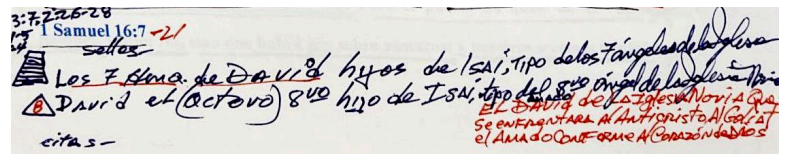 3:7, 2:26-28
1 Samuel 16:7-21
sellos
Los 7 Hma. de DAViD hijos de ISAí, TiPo de los 7 ángeles de la Iglesia
8 David el (octavo) 8vo hijo de ISAí, tipo del 8vo ángel de la Iglesia Novia
EL DAViD de LA Iglesia NoviA Que
Se enFrentara Al Anticristo Al GoliAT
el AmAdo ConForme Al CorAzón de Dios
citas-